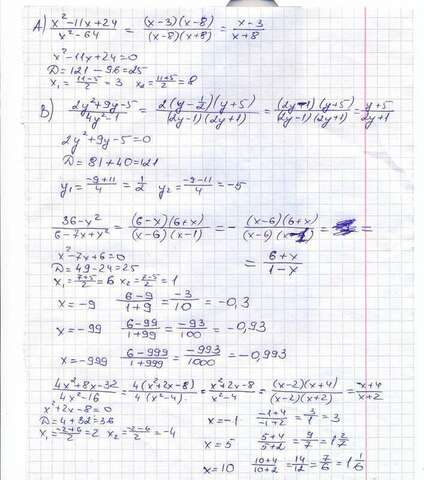 А) (x²-11x+24)/(x²-64) = ((x-3)(x-8))/((x-8)(x+8)) = (x-3)/(x+8)
x²-11x+24=0
D=121-96=25
x₁=(11-5)/2=3 x₂=(11+5)/2=8
В) (2y²+9y-5)/(4y²-1) = (2(y-1/2)(y+5))/((2y-1)(2y+1)) = ((2y-1)(y+5))/((2y-1)(2y+1)) = (y+5)/(2y+1)
2y²+9y-5=0
D=81+40=121
y₁=(-9+11)/4=1/2 y₂=(-9-11)/4=-5
(36-x²)/(6-7x+x²) = ((6-x)(6+x))/((x-6)(x-1)) = -((x-6)(6+x))/((x-6)(x-1)) = =
x²-7x+6=0
= (6+x)/(1-x)
D=49-24=25
x₁=(7+5)/2=6 x₂=(7-5)/2=1
x=-9 (6-9)/(1+9)=(-3)/10=-0,3
x=-99 (6-99)/(1+99)=(-93)/100=-0,93
x=-999 (6-999)/(1+999)=(-993)/1000=-0,993
(4x²+8x-32)/(4x²-16) = (4(x²+2x-8))/(4(x²-4)) = (x²+2x-8)/(x²-4) = ((x-2)(x+4))/((x-2)(x+2)) = (x+4)/(x+2)
x²+2x-8=0
D=4+32=36
x₁=(-2+6)/2=2 x₂=(-2-6)/2=-4
x=-1 (-1+4)/(-1+2)=3/1=3
x=5 (5+4)/(5+2)=9/7=1 2/7
x=10 (10+4)/(10+2)=14/12=7/6=1 1/6